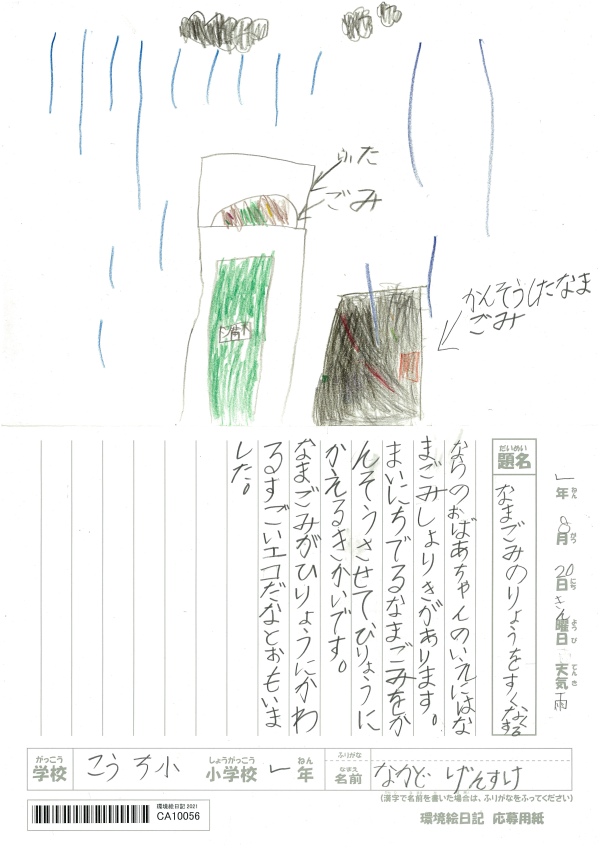 ふた
ごみ
かんそうしたなま
ごみ
だいめい
題名
なまごみのりょうをすくなくする
年 ねん
8月 がつ
20日 にち
きん曜日 ようび
天気 てんき
雨
ならのおばあちゃんのいえにはな
まごみしょりきがあります。
まいにちでるなまごみをか
んそうさせてひりょうに
かえるきかいです。
なまごみがひりょうにかわ
るすごいエコだなとおもいま
した。
がっこう
学校
こうち小
しょうがっこう
小学校
1
ねん
年
ふりがな
なまえ
名前
なかど げんすけ
(漢字で名前を書いた場合は、ふりがなをふってください)
環境絵日記 2021
CA10056
環境絵日記 応募用紙